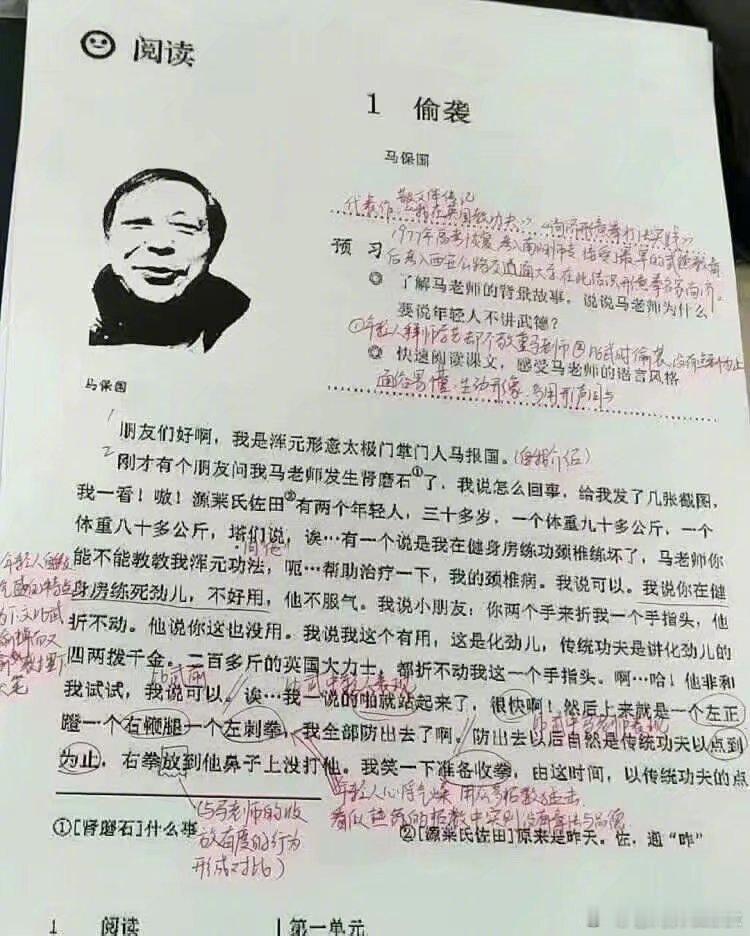 阅读
1 偷袭
马保国
散文集传记
代表作《我在英国教功夫》
预习
1977年高考恢复
◎ 了解马老师的背景故事，说说马老师为什么
要说年轻人不讲武德？
◎ 快速阅读课文，感受马老师的语言风格
通俗易懂·生动形象·多用形声词
马保国
1
朋友们好啊，我是浑元形意太极门掌门人马报国。(自我介绍)
2
刚才有个朋友问我马老师发生肾磨石①了，我说怎么回事，给我发了几张截图，
我一看！嗷！源来氏佐田②有两个年轻人，三十多岁，一个体重九十多公斤，一个
体重八十多公斤，塔们说，诶…有一个说是我在健身房练功颈椎练坏了，马老师你
能不能教教我浑元功法，呃…帮助治疗一下，我的颈椎病。我说可以。我说你在健
身房练死劲儿，不好用，他不服气。我说小朋友：你两个手来折我一个手指头，他
折不动。他说你这也没用。我说我这个有用，这是化劲儿，传统功夫是讲化劲儿的
四两拨千金。二百多斤的英国大力士，都折不动我这一个手指头。啊…哈！他非和
我试试，我说可以。诶…我一说的啪就站起来了，很快啊！然后上来就是一个左正
蹬一个右鞭腿一个左刺拳，我全部防出去了啊。防出去以后自然是传统功夫以点到
为止，右拳放到他鼻子上没打他。我笑一下准备收拳，由这时间，以传统功夫的点
年轻人心浮气燥
(与马老师的收
放有度的行为
形成对比)
①[肾磨石]什么事
②[源来氏佐田]原来是昨天。佐，通“昨”
1 阅读 | 第一单元